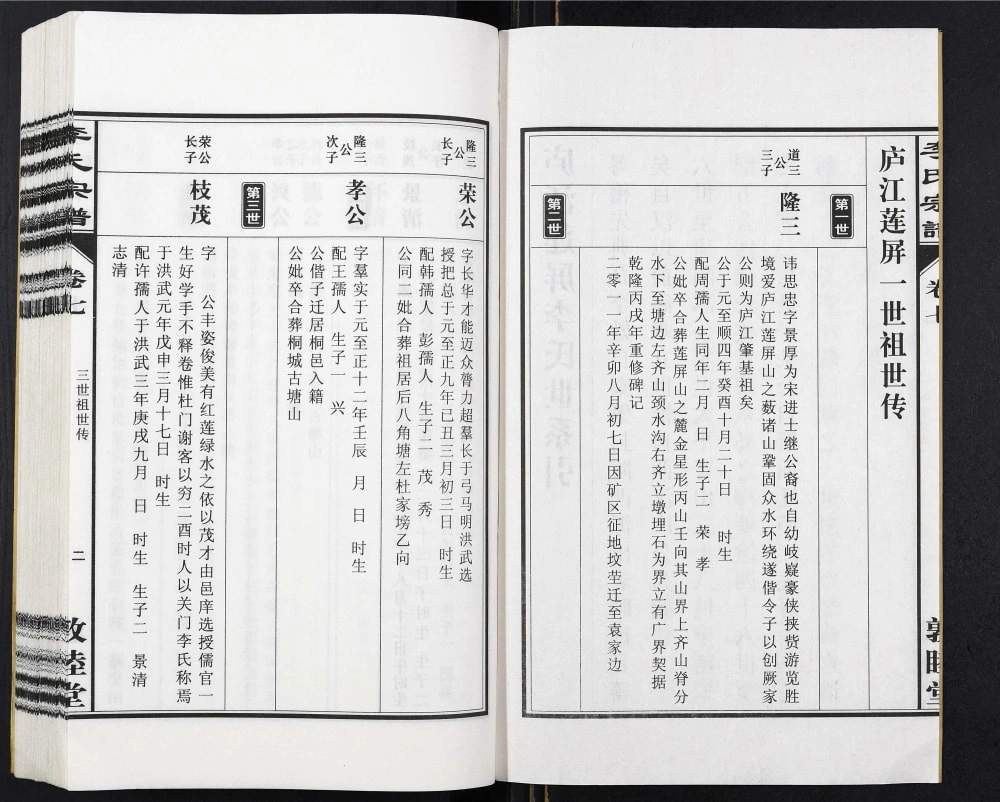 李氏宗谱
卷七
敦睦堂
庐江莲屏一世祖世传
第一世
道三公三子
隆三
讳思忠字景厚为宋进士继公裔也自幼岐嶷豪侠挟赀游览胜
境爱庐江莲屏山之薮诸山鞏固众水环绕遂偕令子以创厥家
公则为庐江肇基祖矣
公于元至顺四年癸酉十月二十日 时生
配周孺人生同年二月 日 生子二 荣 孝
公妣卒合葬莲屏山之麓金星形丙山壬向其山界上齐山脊分
水下至塘边左齐山颈水沟右齐立墩埋石为界立有广界契据
乾隆丙戌年重修碑记
二零一一年辛卯八月初七日因矿区征地坟茔迁至袁家边
第二世
隆三公长子
荣公
字长华才能迈众膂力超羣长于弓马明洪武选
授把总于元至正九年已丑三月初三日 时生
配韩孺人 彭孺人 生子二 茂 秀
公同二妣合葬祖居后八角塘左杜家塝乙向
隆三公次子
孝公
字羣实于元至正十二年壬辰 月 日 时生
配王孺人 生子一 兴
公偕子迁居桐邑入籍
公妣卒合葬桐城古塘山
第三世
荣公长子
枝茂
字 公丰姿俊美有红莲绿水之依以茂才由邑庠选授儒官一
生好学手不释卷惟杜门谢客以穷二酉时人以关门李氏称焉
于洪武元年戊申三月十七日 时生
配许孺人于洪武三年庚戌九月 日 时生 生子二 景清
志清
李氏宗谱
卷七
三世祖世传
二
敦睦堂